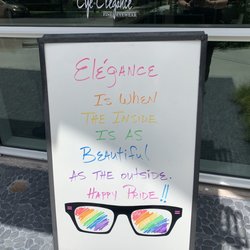 Eye Elegance
FINE EYEWEAR
Elégance
Is When
The Inside
Is As
Beautiful
As the outside.
Happy Pride!!